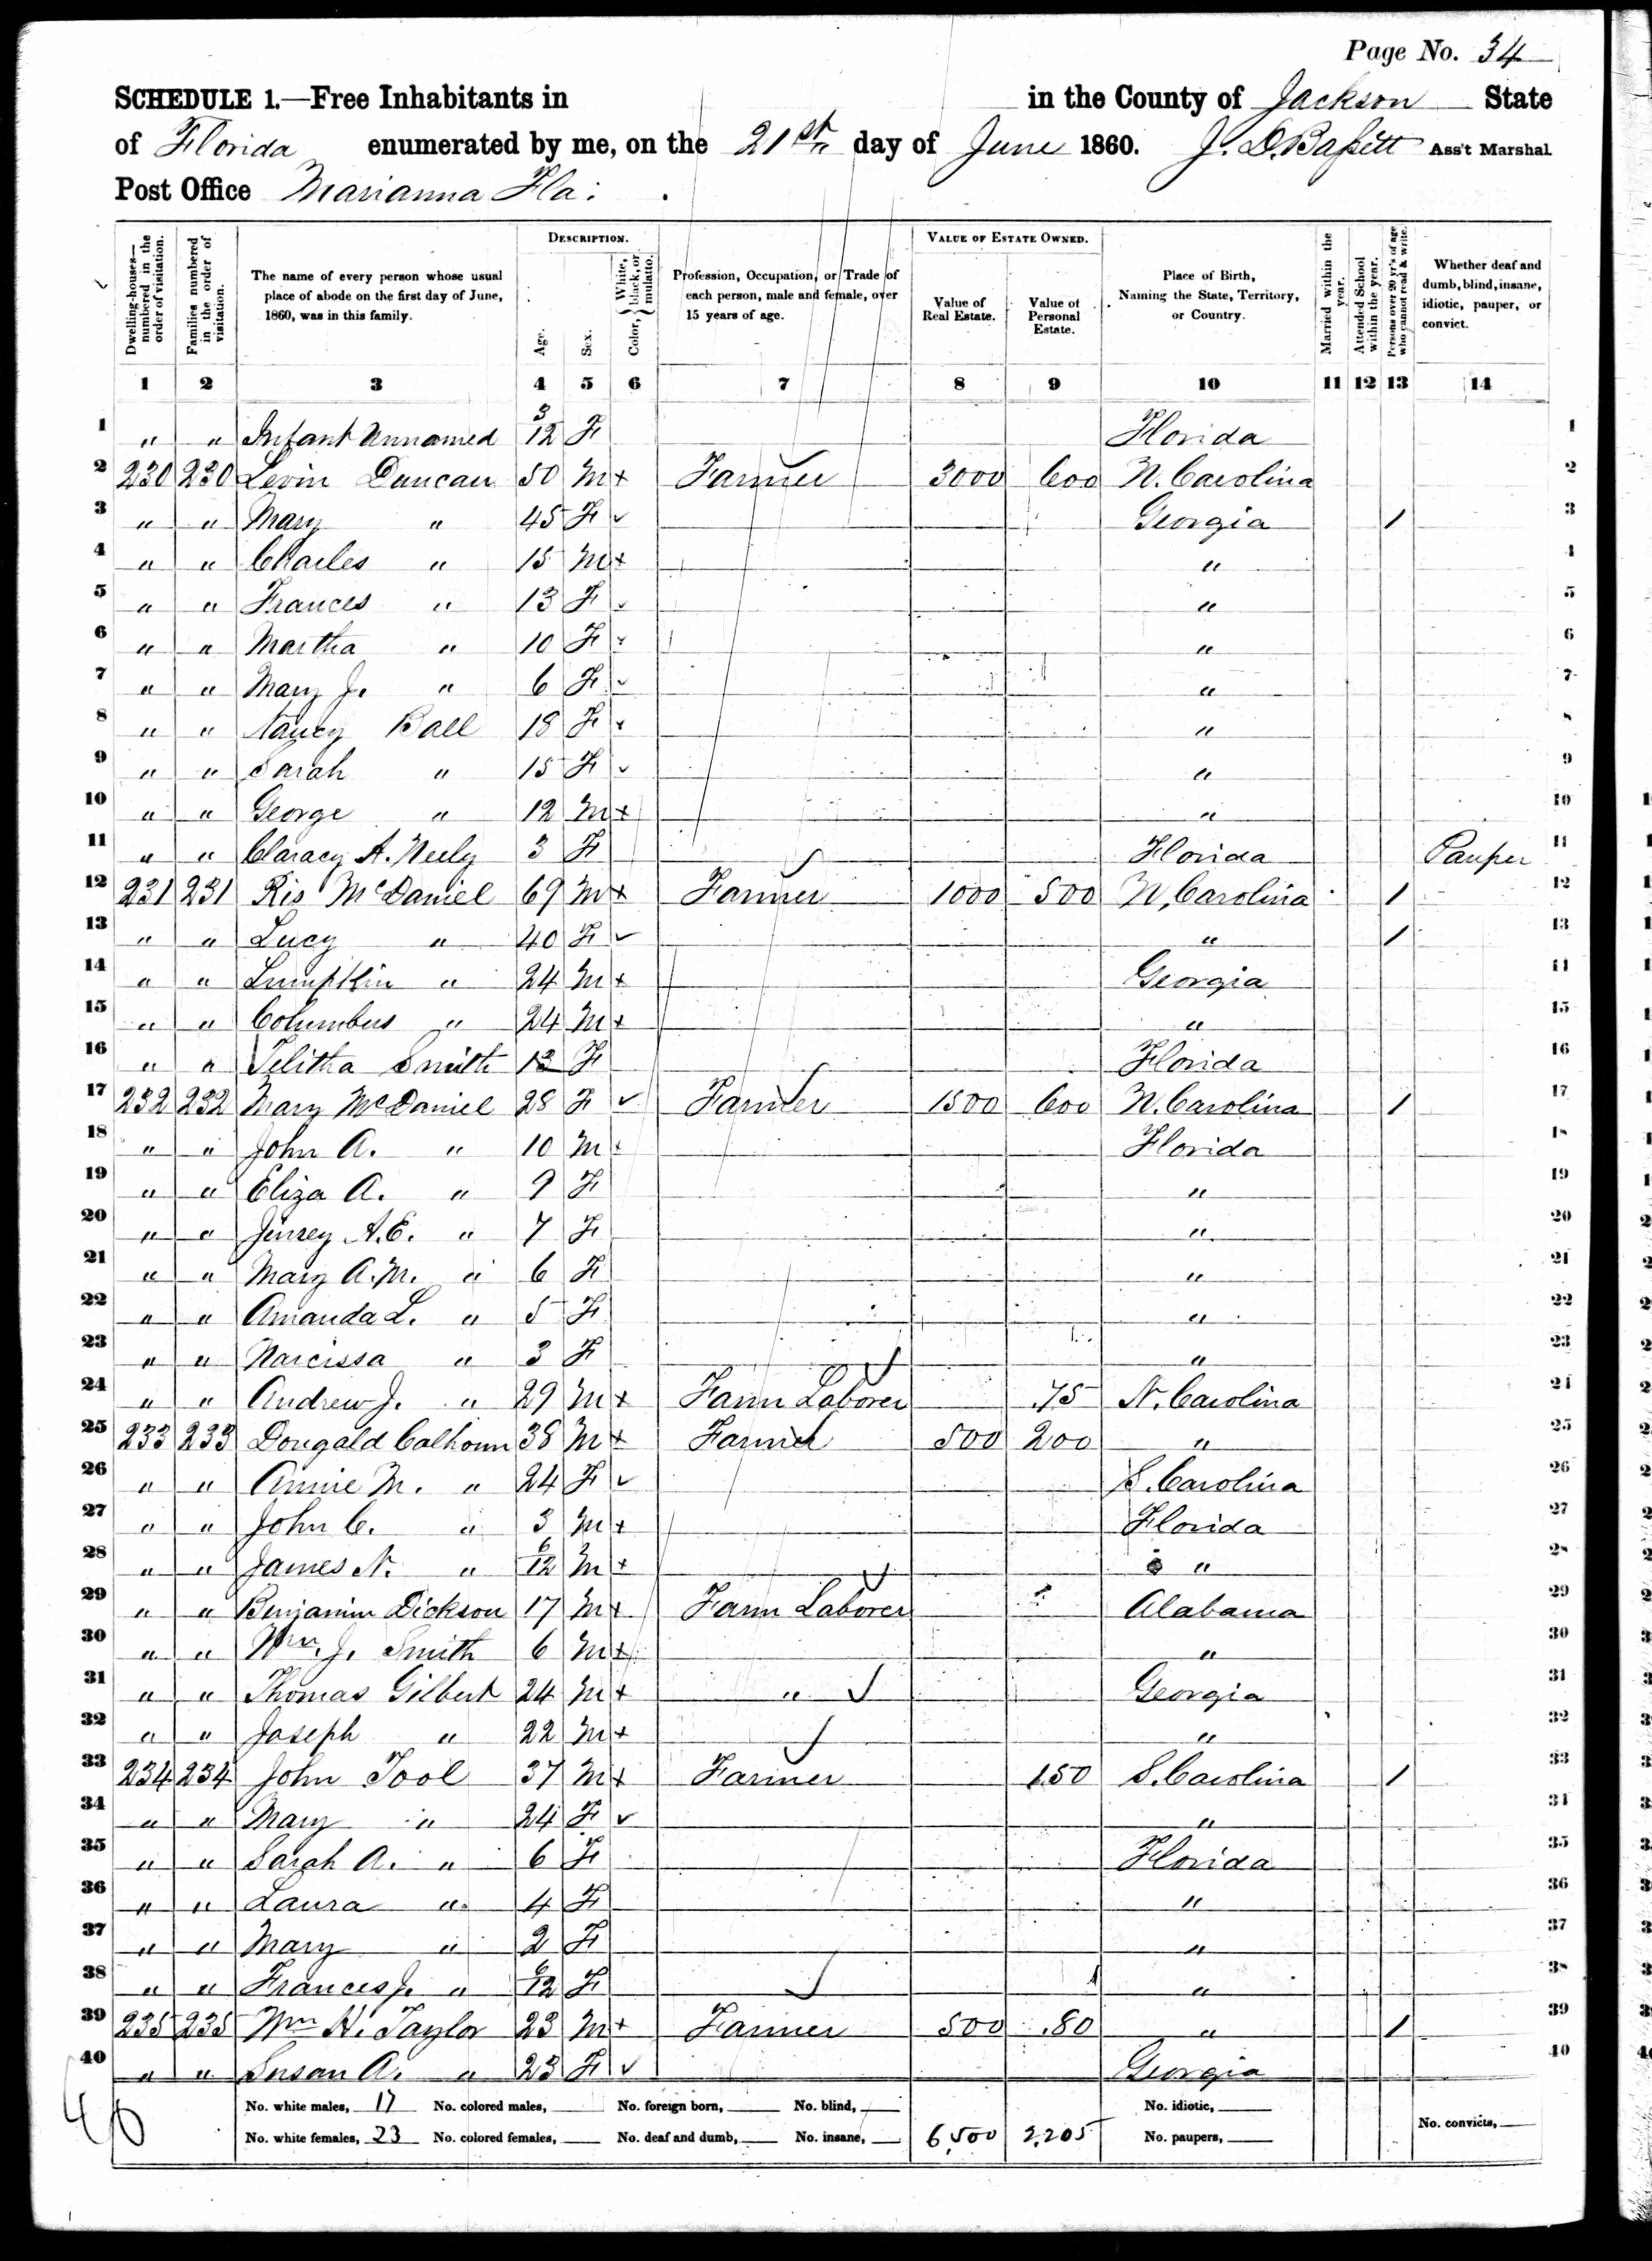 Page No. 34
SCHEDULE 1.—Free Inhabitants in in the County of Jackson State
of Florida enumerated by me, on the 21st day of June 1860. J. D. Bassett Ass't Marshal
Post Office Marianna Fla:
DESCRIPTION. VALUE OF ESTATE OWNED.
Dwelling-houses—numbered in the order of visitation. Families numbered in the order of visitation. The name of every person whose usual place of abode on the first day of June, 1860, was in this family. Age. Sex. Color, { White, black, or mulatto. Profession, Occupation, or Trade of each person, male and female, over 15 years of age. Value of Real Estate. Value of Personal Estate. Place of Birth, Naming the State, Territory, or Country. Married within the year. Attended School within the year. Persons over 20 yr's of age who cannot read & write. Whether deaf and dumb, blind, insane, idiotic, pauper, or convict.
1 2 3 4 5 6 7 8 9 10 11 12 13 14
1 " " Infant Unnamed 3/12 F Florida 1
2 230 230 Levin Duncan 50 M + Farmer 3000 600 N. Carolina 2
3 " " Mary " 45 F ✓ Georgia / 3
4 " " Charles " 15 M + " 4
5 " " Frances " 13 F ✓ " 5
6 " " Martha " 10 F ✓ " 6
7 " " Mary J. " 6 F ✓ " 7
8 " " Nancy Ball 18 F ✓ " 8
9 " " Sarah " 15 F ✓ " 9
10 " " George " 12 M + " 10
11 " " Claracy A. Neely 3 F Florida Pauper 11
12 231 231 Ris McDaniel 69 M + Farmer 1000 500 N, Carolina / 12
13 " " Lucy " 40 F ✓ " / 13
14 " " Lumpkin " 24 M + Georgia 14
15 " " Columbus " 24 M + " 15
16 " " Telitha Smith 13 F Florida 16
17 232 232 Mary McDaniel 28 F ✓ Farmer 1500 600 N. Carolina / 17
18 " " John A. " 10 M Florida 18
19 " " Eliza A. " 9 F " 19
20 " " Jinsey A. E. " 7 F " 20
21 " " Mary A. M. " 6 F " 21
22 " " Amanda L. " 5 F " 22
23 " " Narcissa " 3 F " 23
24 " " Andrew J. " 29 M + Farm Laborer 75 N. Carolina 24
25 233 233 Dougald Calhoun 38 M + Farmer 500 200 " 25
26 " " Annie M. " 24 F ✓ S. Carolina 26
27 " " John C. " 3 M + Florida 27
28 " " James N. " 6/12 M + " 28
29 " " Benjamin Dickson 17 M + Farm Laborer Alabama 29
30 " " Wm. J. Smith 6 M + " 30
31 " " Thomas Gilbert 24 M + " Georgia 31
32 " " Joseph " 22 M + " 32
33 234 234 John Tool 37 M + Farmer 150 S. Carolina / 33
34 " " Mary " 24 F ✓ " 34
35 " " Sarah A. " 6 F Florida 35
36 " " Laura " 4 F " 36
37 " " Mary " 2 F " 37
38 " " Frances J. " 6/12 F " 38
39 235 235 Wm H. Taylor 23 M + Farmer 500 80 " / 39
40 " " Susan A. " 23 F ✓ Georgia 40
40
No. white males, 17 No. colored males, No. foreign born, No. blind, No. idiotic,
No. white females, 23 No. colored females, No. deaf and dumb, No. insane, 6,500 2,205 No. paupers, No. convicts,